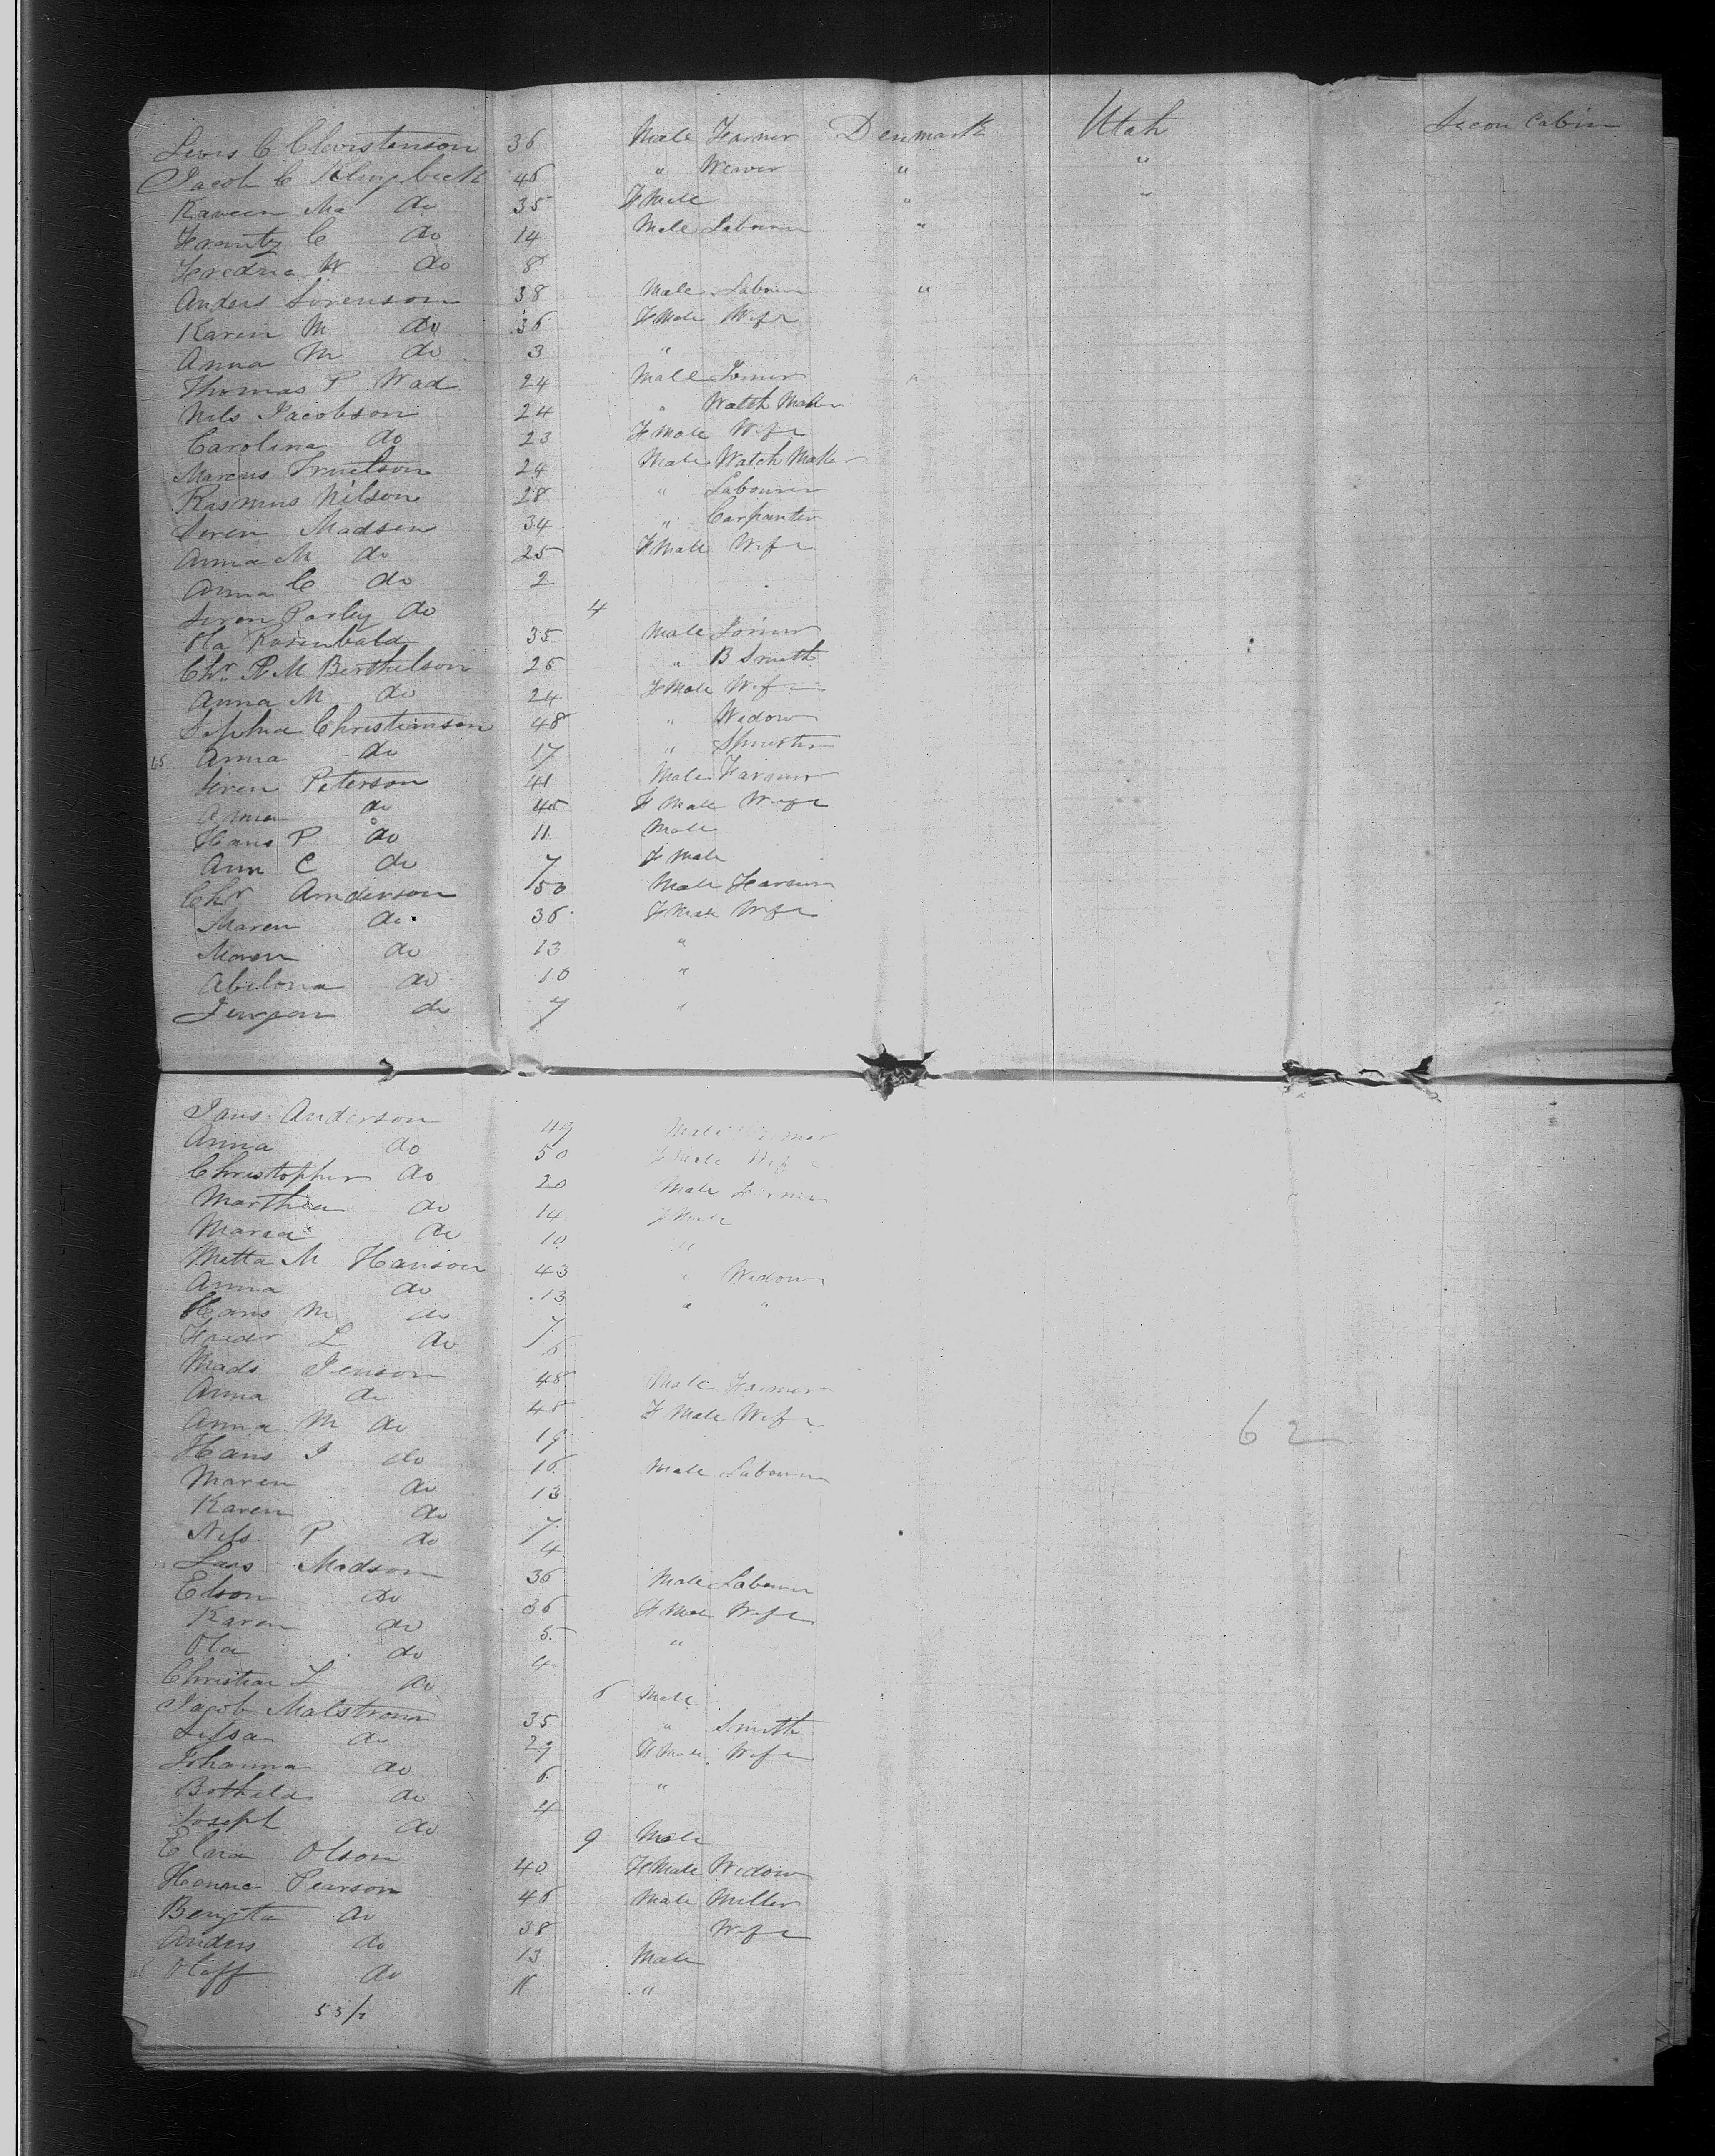 Lewis C Christenson 36 Male Farmer Denmark Utah Secon Cabin
Jacob C Klingbeck 46 " Weaver " "
Kareen Ma do 35 F Male " "
Frantz C do 14 Male Labourer "
Fredric W do 8
Anders Sorenson 38 Male Labourer "
Karen M do 36 F Male Wife
Anna M do 3 "
Thomas P Wad 24 Male Joiner "
Nils Jacobson 24 " Watch Maker
Carolina do 23 F Male Wife
Marcus Truelson 24 Male Watch Maker
Rasmus Nilson 28 " Labourer
Soren Madsen 34 " Carpanter
Anna M do 25 F Male Wife
Anna C do 2
Soren Parley do 4
Ola Rosenbald 35 Male Joiner
Chr. P. M Berthelson 26 " B Smith
Anna M do 24 F Male Wife
Sophia Christianson 48 " Widow
Anna do 17 " Spinster
Soren Peterson 41 Male Farmer
Anna do 45 F Male Wife
Hans P do 11 Male
Ann C do 7 F Male
Chr Anderson 50 Male Farmer
Maren do 36 F Male Wife
Maren do 13 "
Abelona do 10 "
Jurgan do 7 "
Jans Anderson 49 Male Farmer
Anna do 50 F Male Wife
Christopher do 20 Male Farmer
Marthea do 14 F Male
Maria do 10 "
Metta M Hanson 43 " Widow
Anna do 13 " "
Hans M do 7
L do 6
Mads Jenson 48 Male Farmer
Anna do 48 F Male Wife
Anna M do 19
62
Hans J do 16 Male Labourer
Maren do 13
Karen do 7
Nils P do 4
Lars Madson 36 Male Labourer
Elson do 36 F Male Wife
Karen do 5 "
Ola do 4
Christian L do 6 Male
Jacob Malstrom 35 " Smith
Sissa do 29 F Male Wife
Johanna do 6 "
Bothilda do 4
Joseph do 9 Male
Elna Olson 40 F Male Widow
Pearson 46 Male Miller
Bengta do 38 Wife
Anders do 13 Male
Oloff do 11 "
53/2